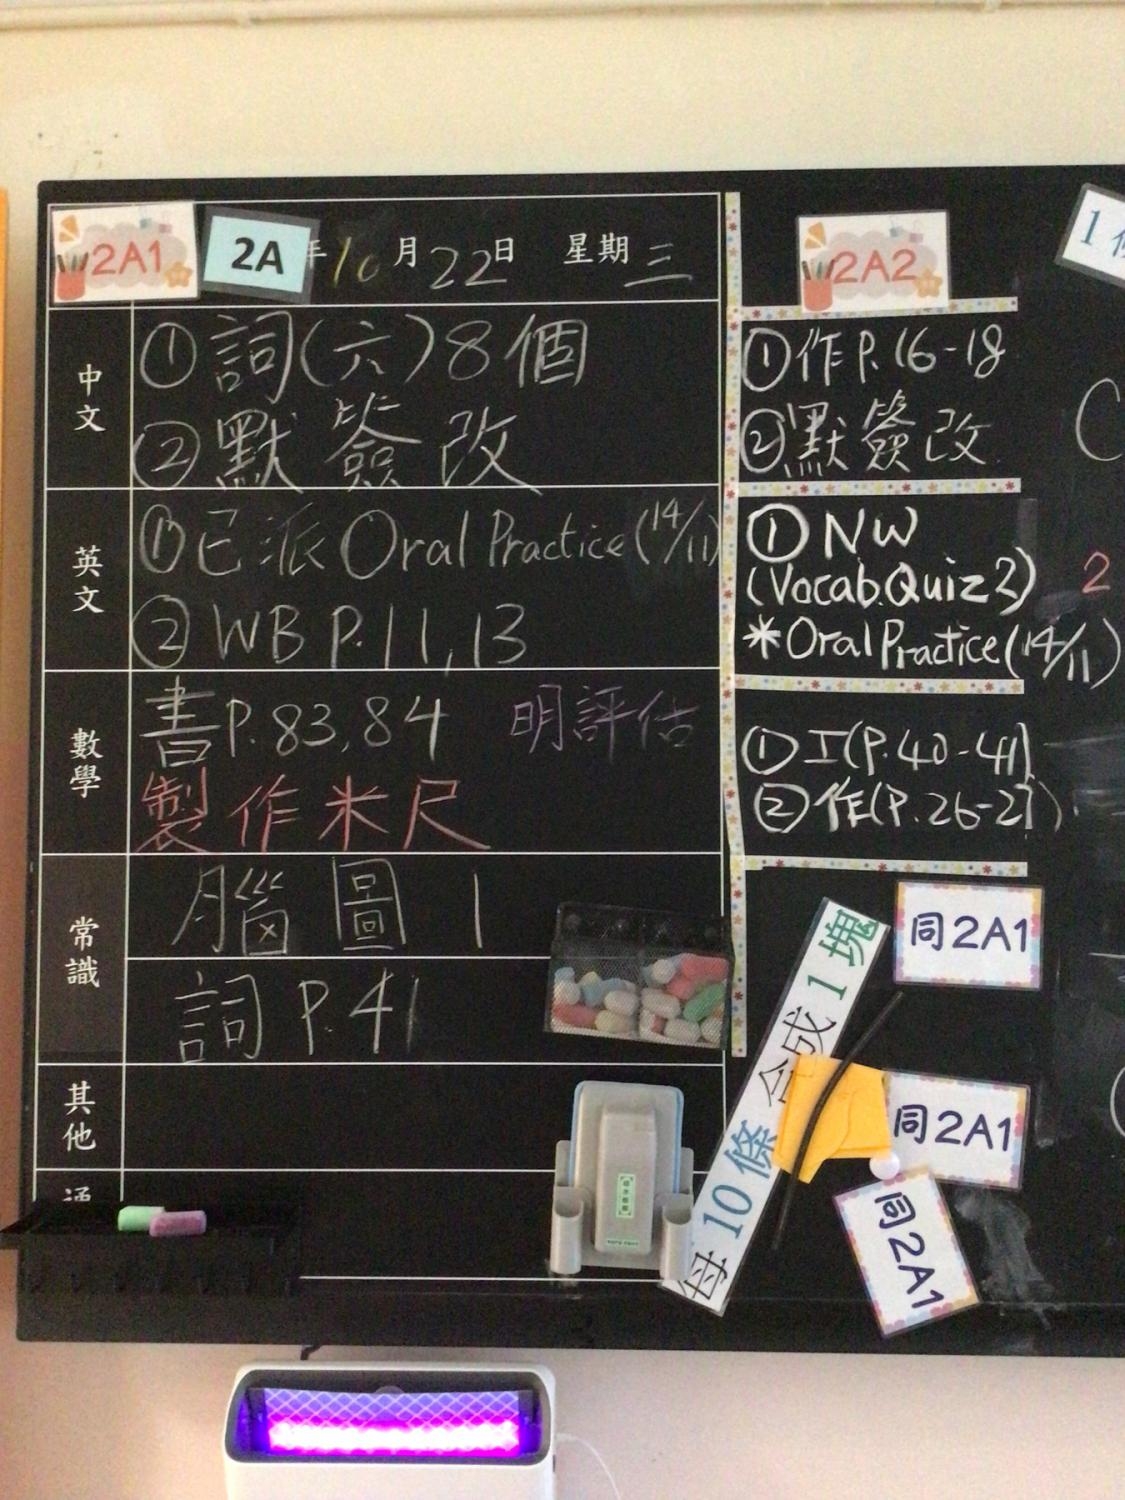 2A1
2A
年 10 月 22 日 星期 三
中文
① 詞(六) 8 個
② 默 簽 改
英文
① 已派 Oral Practice (14/11)
② WB P.11, 13
數學
書 P.83, 84 明評估
製作米尺
常識
腦圖 1
詞 P.41
其他
2A2
① 作 P.16-18
② 默簽改
① NW
(Vocab.Quiz 2)
* Oral Practice (14/11)
① 工(P.40-41)
② 作(P.26-27)
同2A1
同2A1
同2A1
每10條合成1塊
2